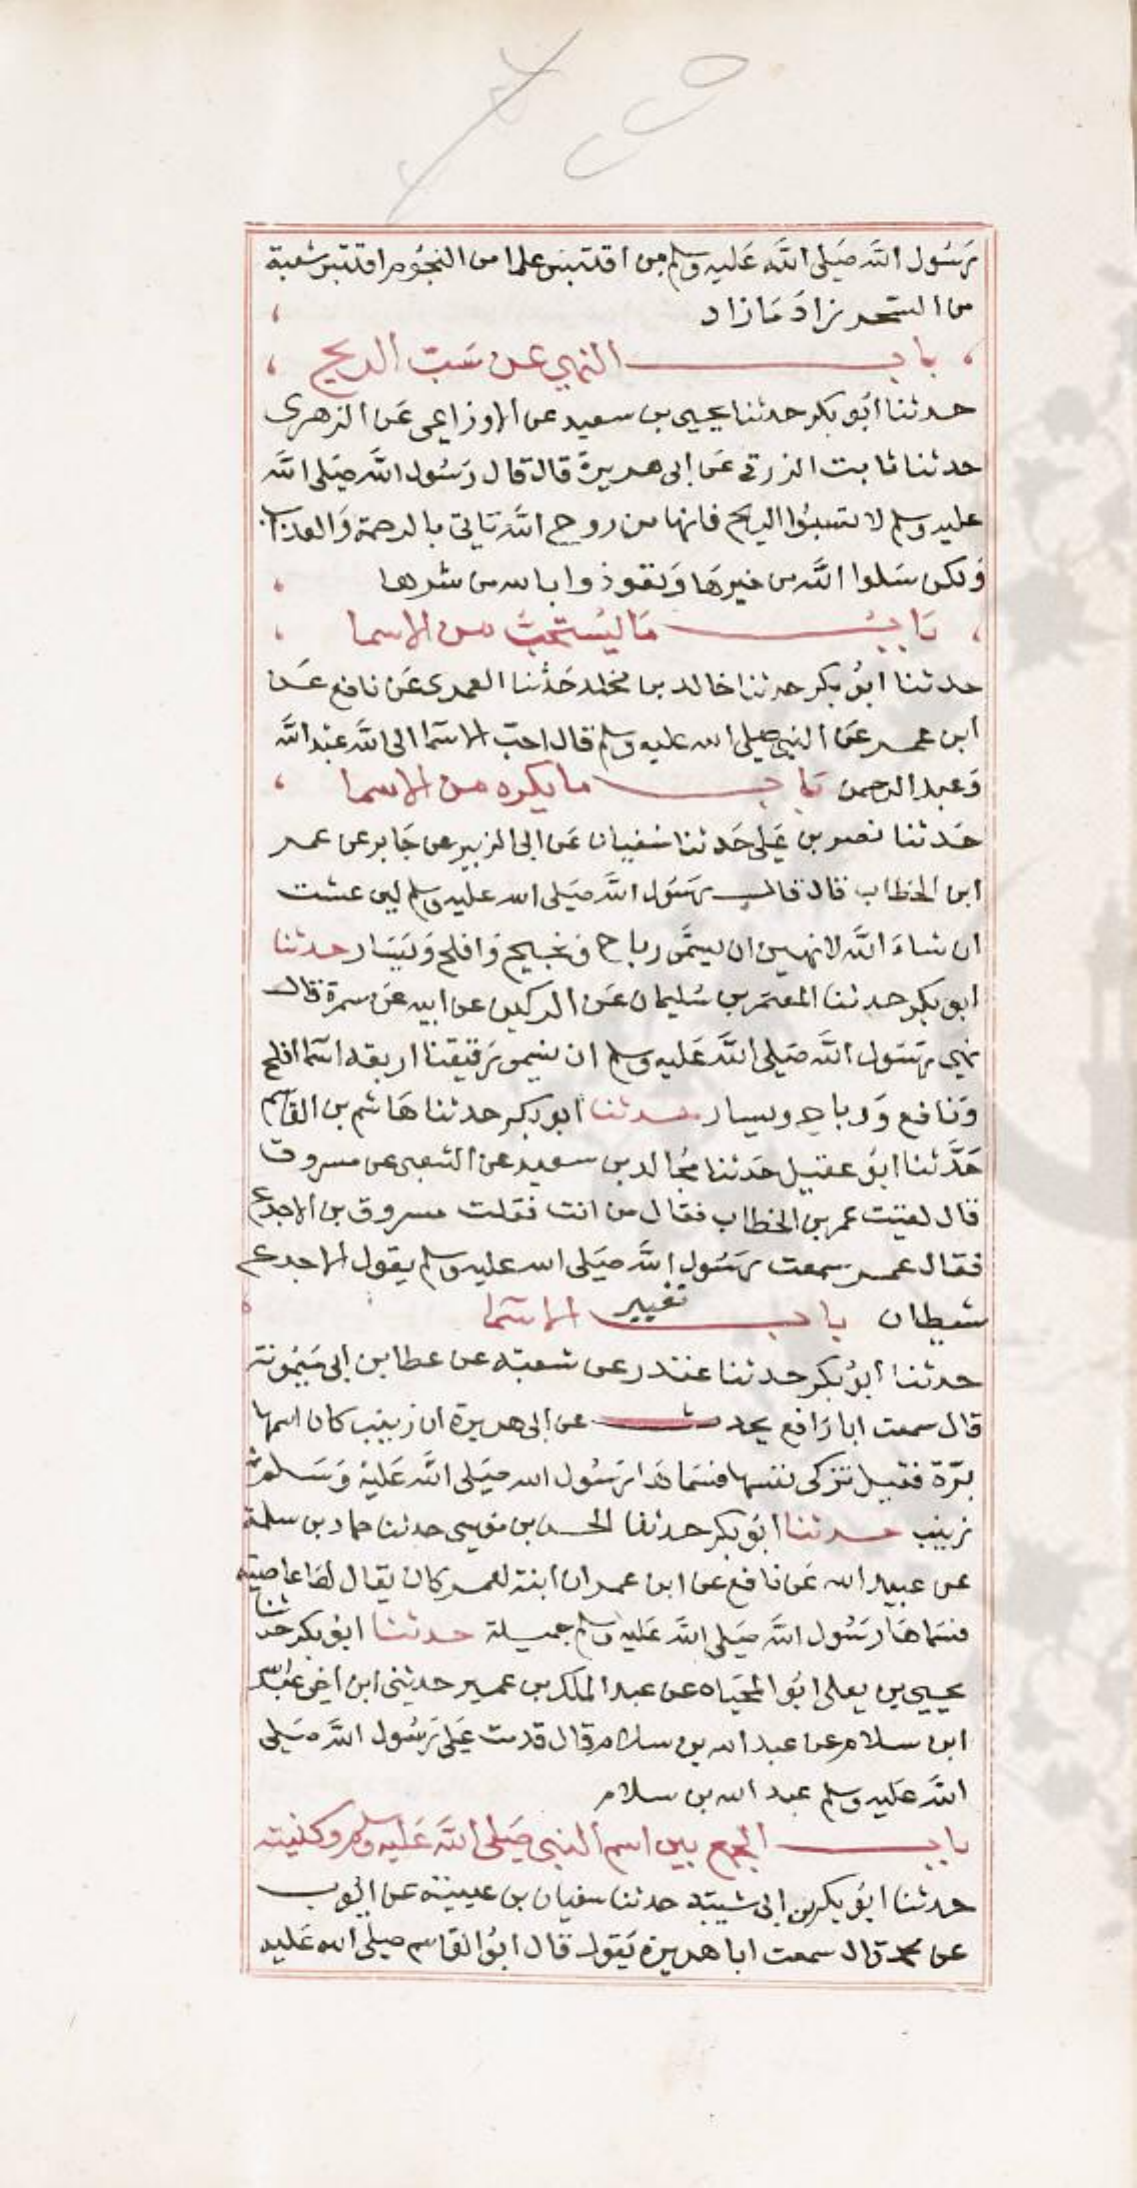 رسول الله صلى الله عليه وسلم من اقتبس علما من النجوم اقتبس شعبة
من السحر زاد ما زاد
باب النهي عن سب الريح
حدثنا ابو بكر حدثنا يحيى بن سعيد عن الاوزاعي عن الزهرى
حدثنا ثابت الزرقي عن ابى هريرة قال قال رسول الله صلى الله
عليه وسلم لا تسبوا الريح فانها من روح الله تاتي بالرحمة والعذاب
ولكن سلوا الله من خيرها وتعوذوا بالله من شرها
باب ما يستحب من الاسما
حدثنا ابو بكر حدثنا خالد بن مخلد حدثنا العمرى عن نافع عن
ابن عمر عن النبي صلى الله عليه وسلم قال احب الاسما الى الله عبد الله
وعبد الرحمن باب ما يكره من الاسما
حدثنا نصر بن علي حدثنا سفيان عن ابى الزبير عن جابر عن عمر
ابن الخطاب قال قال رسول الله صلى الله عليه وسلم لين عشت
ان شاء الله لانهين ان يسمى رباح ونجيح وافلح ويسار حدثنا
ابو بكر حدثنا المعتمر بن سليمان عن الركين عن ابيه عن سمرة قال
نهى رسول الله صلى الله عليه وسلم ان نسمي رقيقنا اربعة اسما افلح
ونافع ورباح ويسار حدثنا ابو بكر حدثنا هاشم بن القاسم
حدثنا ابو عقيل حدثنا مجالد بن سعيد عن الشعبى عن مسروق
قال لقيت عمر بن الخطاب فقال من انت فقلت مسروق بن الاجدع
فقال عمر سمعت رسول الله صلى الله عليه وسلم يقول الاجدع
شيطان باب تغيير الاسما
حدثنا ابو بكر حدثنا غندر عن شعبة عن عطا بن ابى ميمونة
قال سمعت ابا رافع يحدث عن ابى هريرة ان زينب كان اسمها
برة فقيل تزكى نفسها فسماها رسول الله صلى الله عليه وسلم
زينب حدثنا ابو بكر حدثنا الحسن بن موسى حدثنا حماد بن سلمة
عن عبيد الله عن نافع عن ابن عمر ان ابنة لعمر كان يقال لها عاصية
فسماها رسول الله صلى الله عليه وسلم جميلة حدثنا ابو بكر حدثنا
يحيى بن يعلى ابو المحياه عن عبد الملك بن عمير حدثنى ابن اخى عبد الله
ابن سلام عن عبد الله بن سلام قال قدمت على رسول الله صلى
الله عليه وسلم عبد الله بن سلام
باب الجمع بين اسم النبي صلى الله عليه وسلم وكنيته
حدثنا ابو بكر بن ابى شيبة حدثنا سفيان بن عيينة عن ايوب
عن محمد قال سمعت ابا هريرة يقول قال ابو القاسم صلى الله عليه